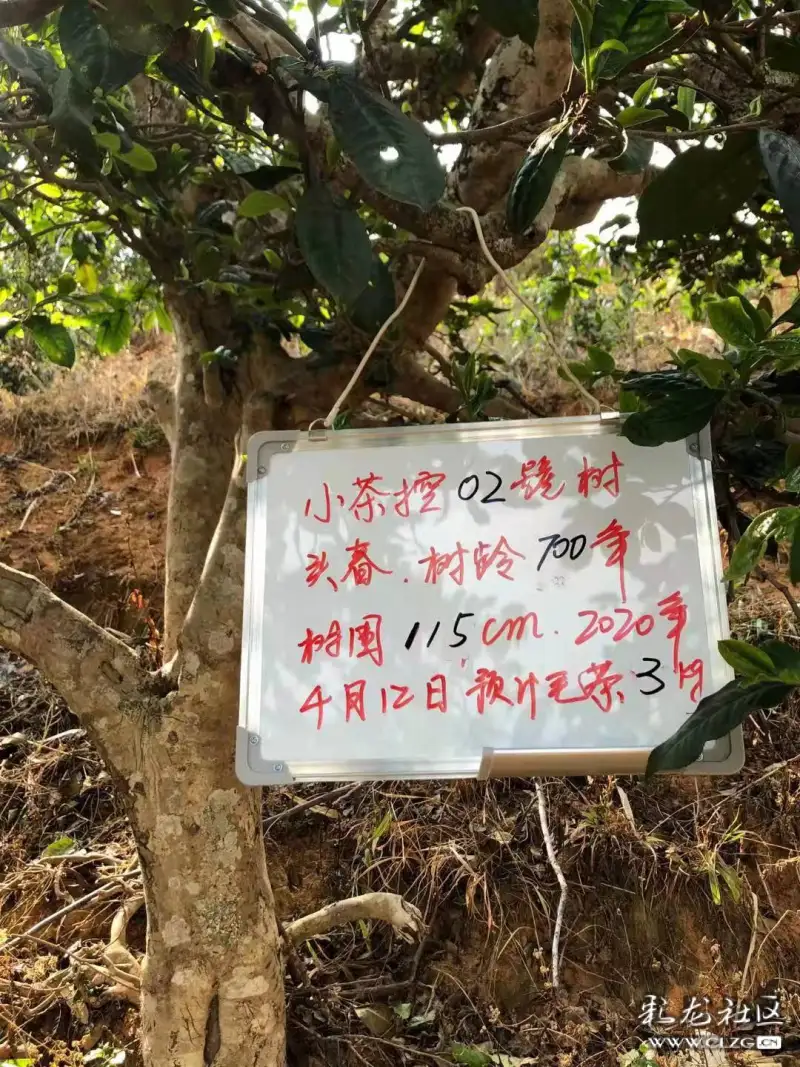 小茶控02號树
头春.树龄700年
树围115cm.2020年
4月12日预计毛茶3kg
彩龙社区
WWW.CLZG.CN